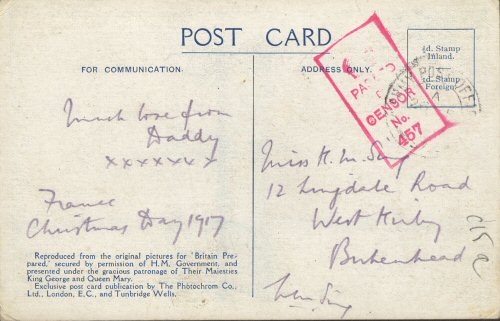 POST CARD
FOR COMMUNICATION.
ADDRESS ONLY.
½d. Stamp
Inland.
1d. Stamp
Foreign.
PASSED
CENSOR
No.
457
Much love from
Daddy
x x x x x x x
France
Christmas Day 1917
Miss K. M.
12 Lingdale Road
West Kirby
Birkenhead
Reproduced from the original pictures for "Britain Pre-
pared," secured by permission of H.M. Government, and
presented under the gracious patronage of Their Majesties
King George and Queen Mary.
Exclusive post card publication by The Photochrom Co.,
Ltd., London, E.C., and Tunbridge Wells.